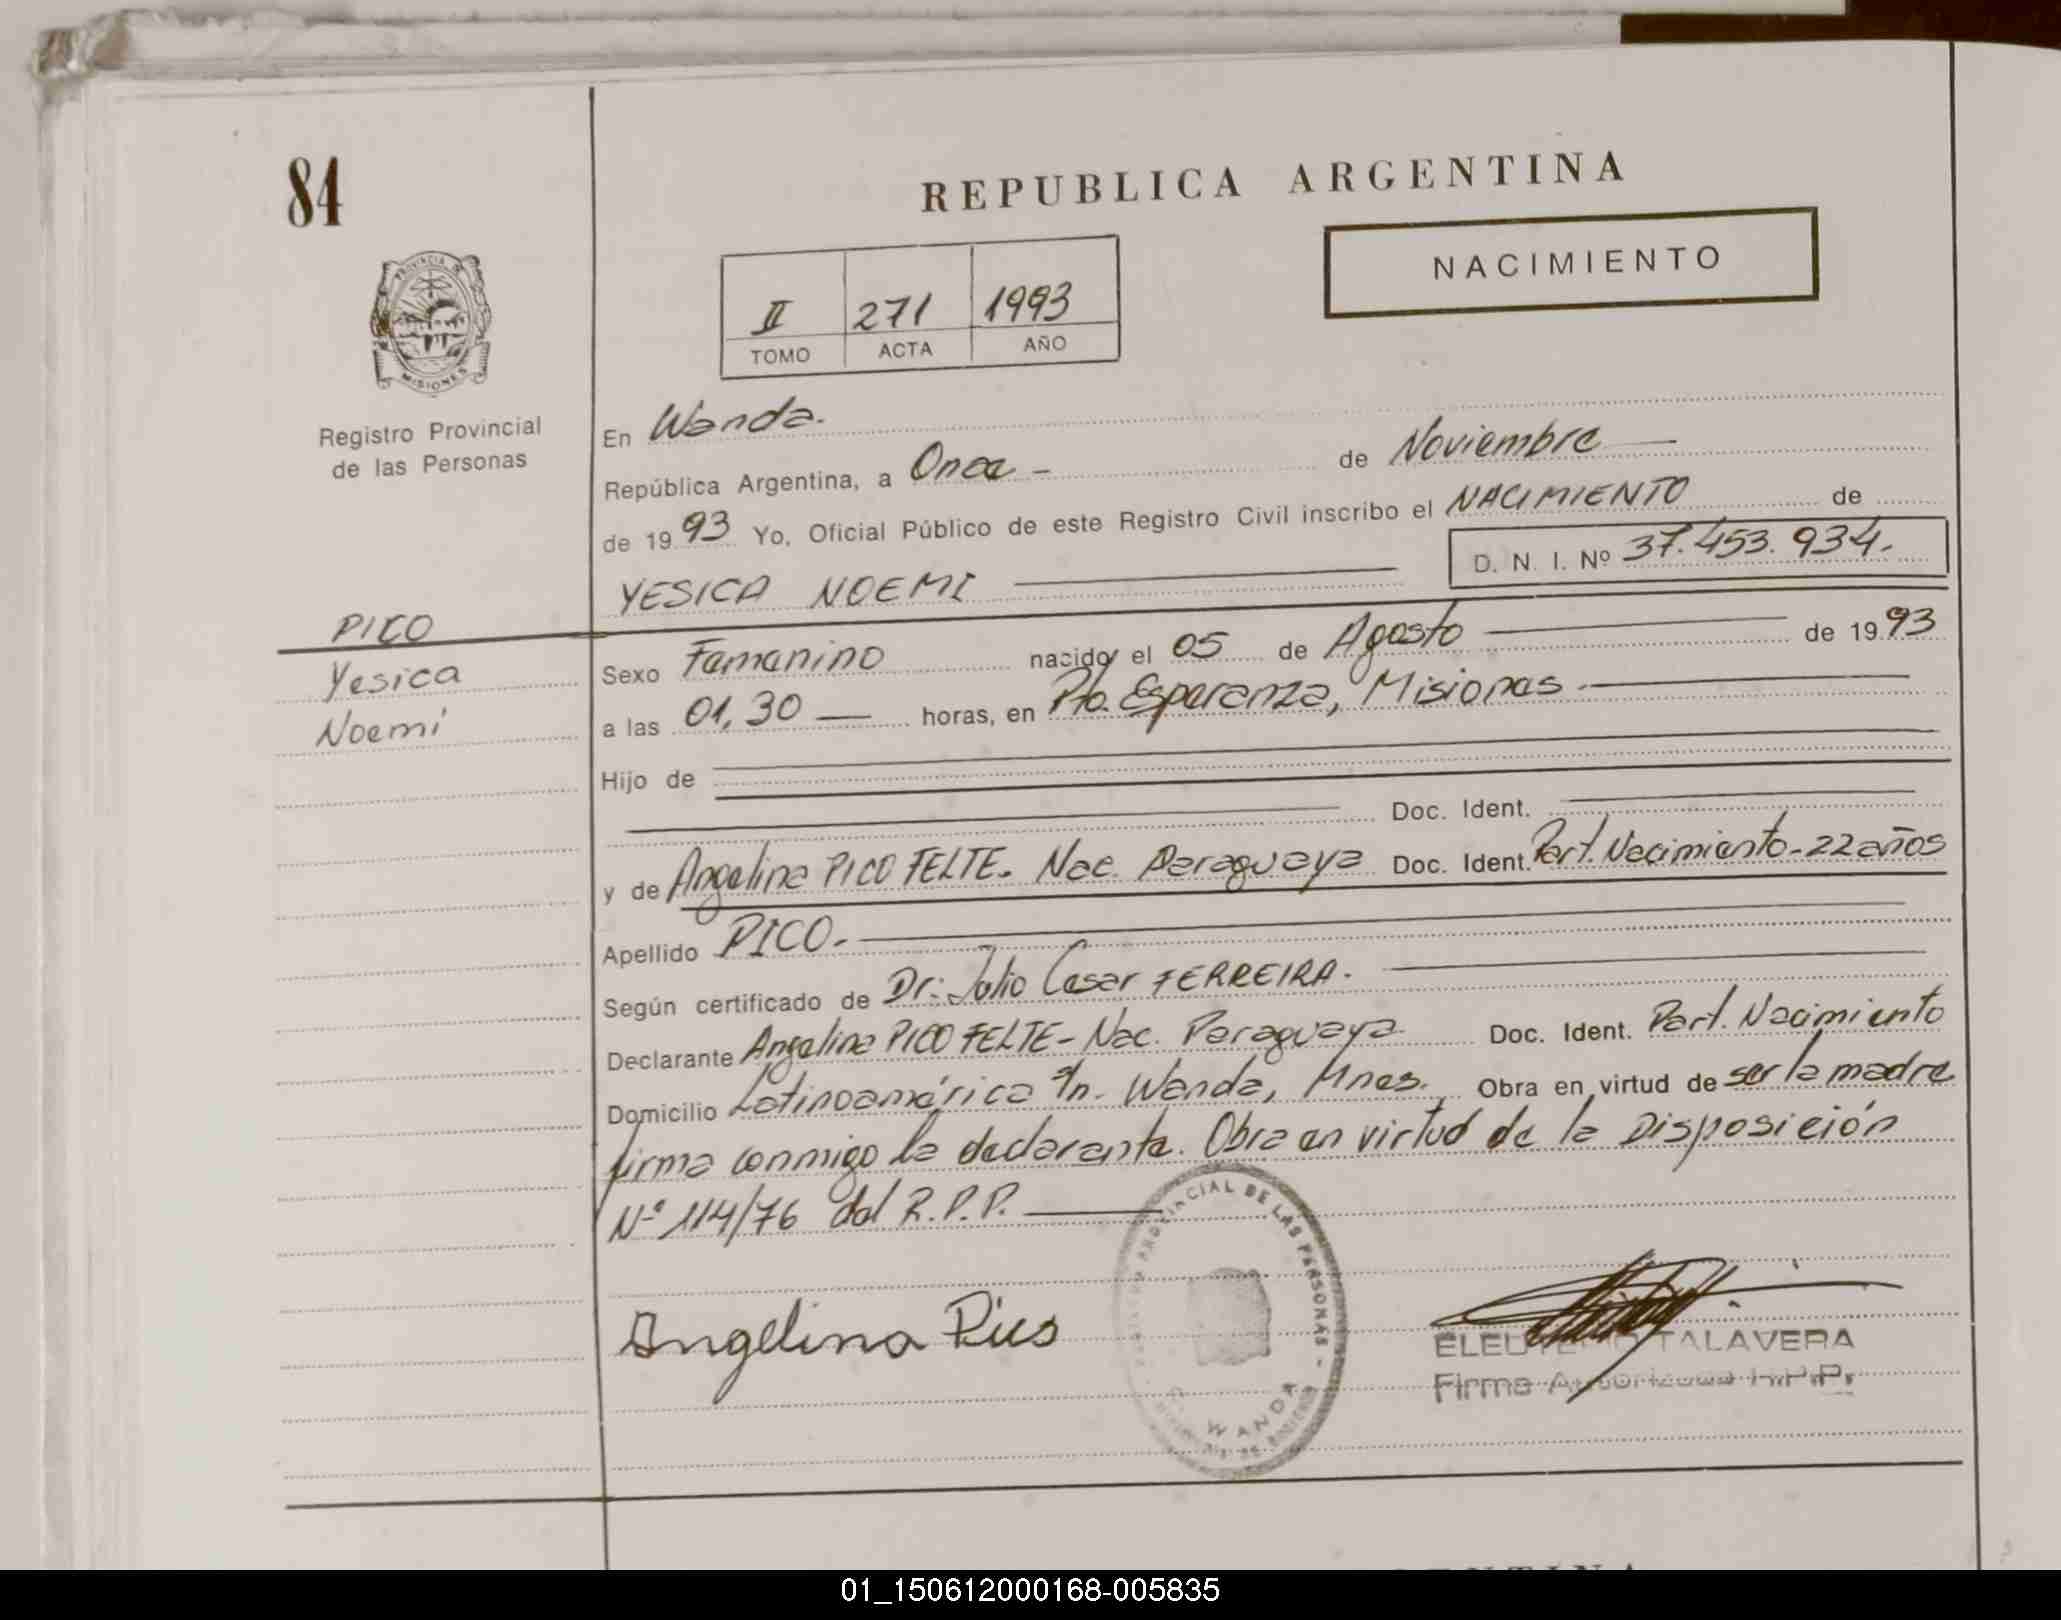 84
REPUBLICA ARGENTINA
NACIMIENTO
PROVINCIA DE
MISIONES
II 271 1993
TOMO ACTA AÑO
Registro Provincial
de las Personas
En Wanda.
República Argentina, a Once - de Noviembre
de 1993 Yo, Oficial Público de este Registro Civil inscribo el NACIMIENTO de
D. N. I. Nº 37.453.934.
YESICA NOEMI
PICO
Yesica
Noemi
Sexo Femenino nacido el 05 de Agosto de 1993
a las 01,30 horas, en Pto. Esperanza, Misiones.
Hijo de
Doc. Ident.
y de Angelina PICO FELTE. Nac. Paraguaya Doc. Ident. Part. Nacimiento-22 años
Apellido PICO.
Según certificado de Dr: Julio Cesar FERREIRA.
Declarante Angelina PICO FELTE - Nac. Paraguaya. Doc. Ident. Part. Nacimiento
Domicilio Latinoamérica s/n. Wanda, Mnes. Obra en virtud de ser la madre
firma conmigo la declarante. Obra en virtud de la Disposición
Nº 114/76 del R.P.P.
PROVINCIAL DE LAS PERSONAS
WANDA
Angelina Pico
TALAVERA
Firma Autorizada R.P.P.
01_150612000168-005835